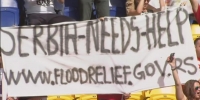 SERBIA-NEEDS-HELP
WWW.FLOODRELIEF.GOV.RS